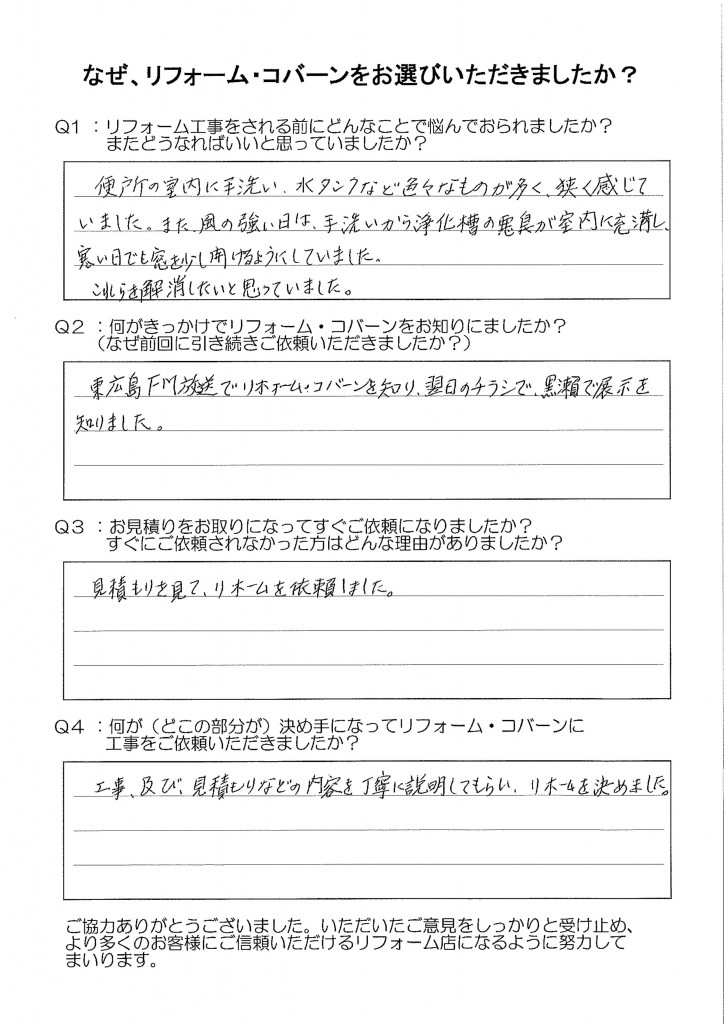 なぜ、リフォーム・コバーンをお選びいただきましたか？
Q1：リフォーム工事をされる前にどんなことで悩んでおられましたか？
またどうなればいいと思っていましたか？
便所の室内に手洗い、水タンクなど色々なものが多く、狭く感じて
いました。また、風の強い日は、手洗いから浄化槽の悪臭が室内に充満し、
寒い日でも窓を少し開けるようにしていました。
これらを解消したいと思っていました。
Q2：何がきっかけでリフォーム・コバーンをお知りにましたか？
（なぜ前回に引き続きご依頼いただきましたか？）
東広島FM放送でリホーム・コバーンを知り、翌日のチラシで、黒瀬で展示を
知りました。
Q3：お見積りをお取りになってすぐご依頼になりましたか？
すぐにご依頼されなかった方はどんな理由がありましたか？
見積もりを見て、リホームを依頼しました。
Q4：何が（どこの部分が）決め手になってリフォーム・コバーンに
工事をご依頼いただきましたか？
工事、及び、見積もりなどの内容を丁寧に説明してもらい、リホームを決めました。
ご協力ありがとうございました。いただいたご意見をしっかりと受け止め、
より多くのお客様にご信頼いただけるリフォーム店になるように努力して
まいります。